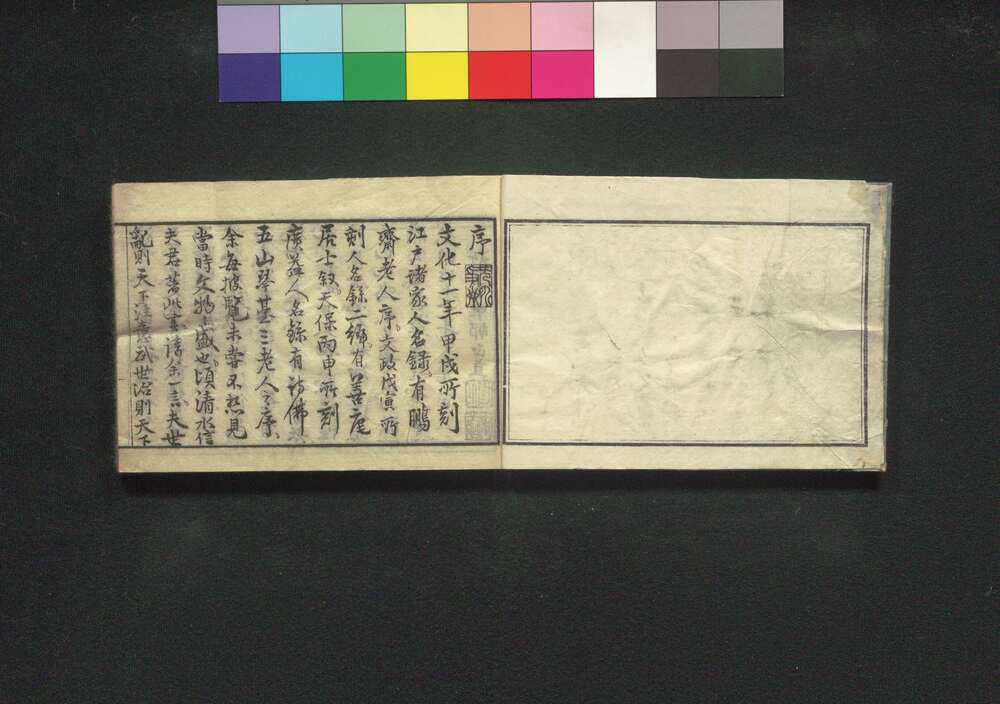 序
文化十一年甲戌所刻
江戸諸家人名録。有鵬
齋老人序。文政戊寅所
刻人名録二編。有善庵
居士叙。天保丙申所刻
廣益人名録有詩佛
五山琴䑓三老人之序。
余每披覧未嘗不想見
當時文物之盛也頃清水信
夫君著此書請余一言夫世
亂則天下注意武世治則天下